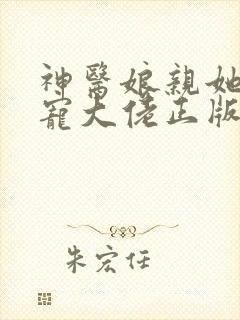 神醫娘親她
寵大佬正版
朱宏任